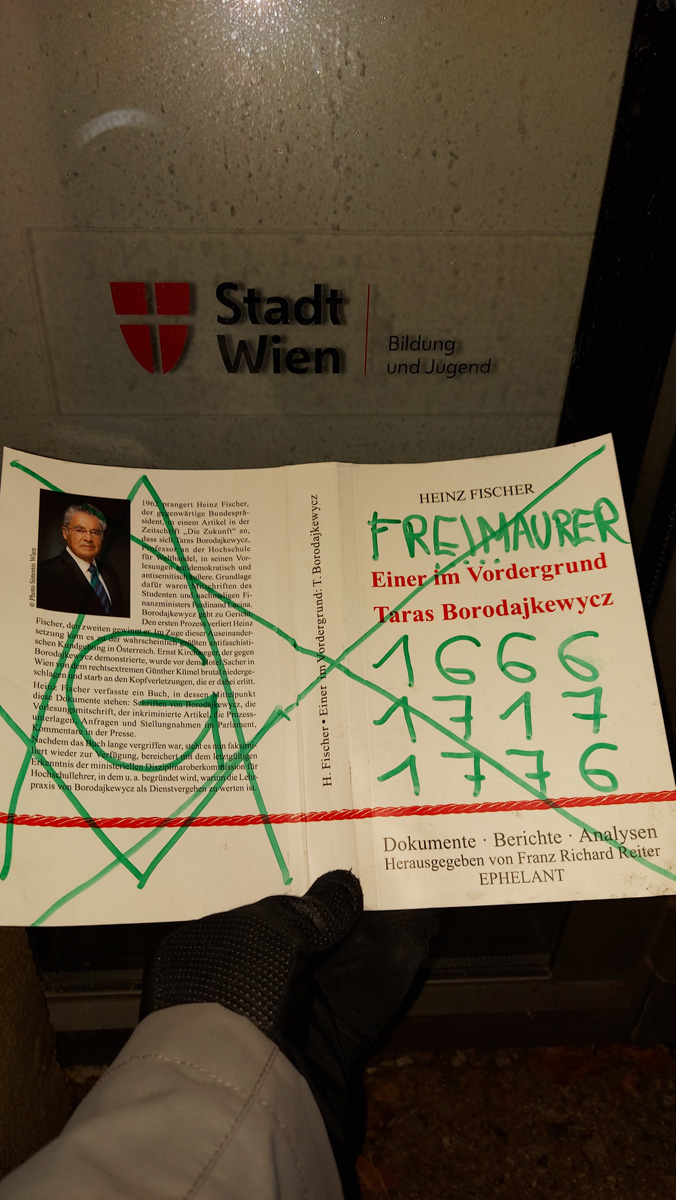 Stadt
Wien
Bildung
und Jugend
© Photo Simonis Wien
1962 prangert Heinz Fischer,
der gegenwärtige Bundespräsi-
dent, in einem Artikel in der
Zeitschrift „Die Zukunft“ an,
dass sich Taras Borodajkewycz,
Professor an der Hochschule
für Welthandel, in seinen Vor-
lesungen antidemokratisch und
antisemitisch äußere. Grundlage
dafür waren Mitschriften des
Studenten und nachmaligen Fi-
nanzministers Ferdinand Lacina.
Borodajkewycz geht zu Gericht.
Den ersten Prozess verliert Heinz
Fischer, den zweiten gewinnt er. Im Zuge dieser Auseinander-
setzung kam es zu der wahrscheinlich größten antifaschisti-
schen Kundgebung in Österreich. Ernst Kirchweger, der gegen
Borodajkewycz demonstrierte, wurde vor dem Hotel Sacher in
Wien vom rechtsextremen Günther Kümel brutal niederge-
schlagen und starb an den Kopfverletzungen, die er dabei erlitt.
Heinz Fischer verfasste ein Buch, in dessen Mittelpunkt
diese Dokumente stehen: Schriften von Borodajkewycz, die
Vorlesungsmitschrift, der inkriminierte Artikel, die Prozess-
unterlagen, Anfragen und Stellungnahmen im Parlament,
Kommentare in der Presse.
Nachdem das Buch lange vergriffen war, steht es nun faksimi-
liert wieder zur Verfügung, bereichert mit dem letztgültigen
Erkenntnis der ministeriellen Disziplinaroberkommission für
Hochschullehrer, in dem u. a. begründet wird, warum die Lehr-
praxis von Borodajkewycz als Dienstvergehen zu werten ist.
G
H. Fischer • Einer im Vordergrund: T. Borodajkewycz
HEINZ FISCHER
FREIMAURER
Einer im Vordergrund
Taras Borodajkewycz
1666
1717
1776
Dokumente · Berichte · Analysen
Herausgegeben von Franz Richard Reiter
EPHELANT